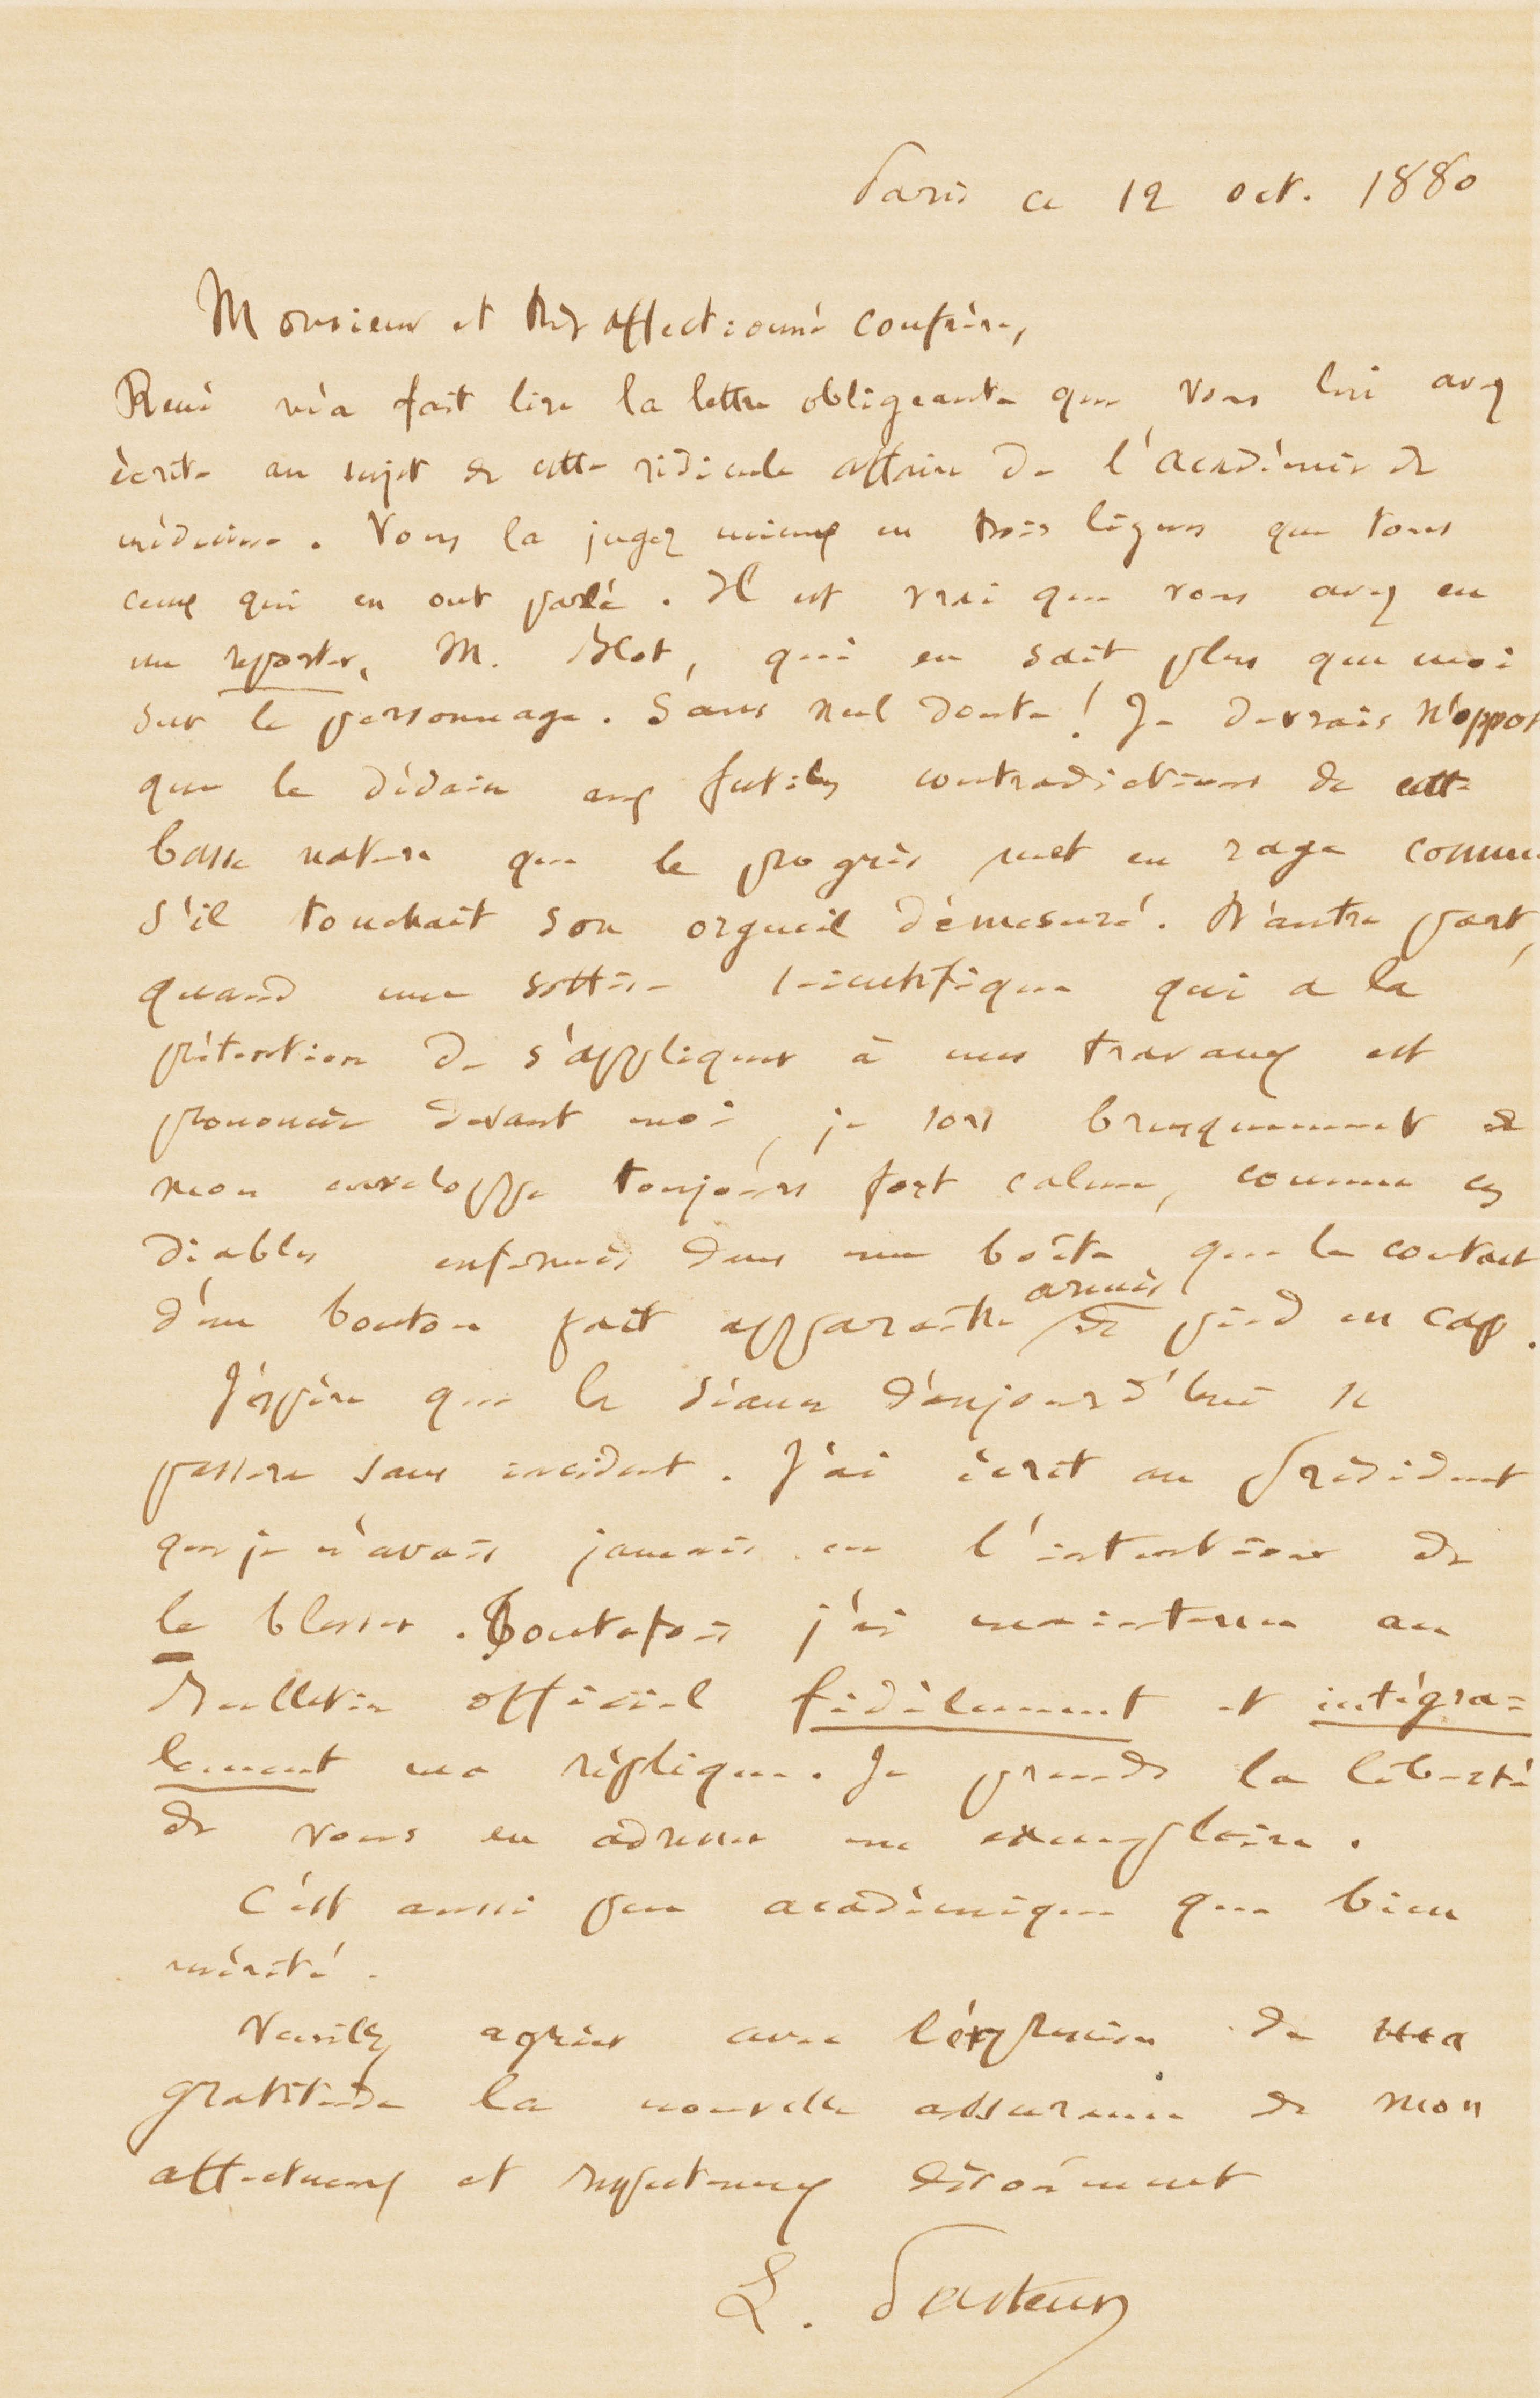 Paris ce 12 oct. 1880
Monsieur et très affectionné confrère,
René m'a fait lire la lettre obligeante que vous lui avez
écrite au sujet de cette ridicule affaire de l'Académie de
médecine. Vous la jugez mieux en trois lignes que tous
ceux qui en ont parlé. Il est vrai que vous avez eu
un reporter, M. Blot, qui en sait plus que moi
sur le personnage. Sans nul doute! Je devrais n'oppos
que le dédain aux futiles contradictions de cette
basse nature que le progrès met en rage comme
s'il touchait son orgueil démesuré. D'autre part,
quand une sottise scientifique qui a la
prétention de s'appliquer à mes travaux est
prononcée devant moi, je sors brusquement de
mon enveloppe toujours fort calme, comme ces
diables enfermés dans une boîte que le contact
d'un bouton fait apparaître armés de pied en cap.
J'espère que la séance d'aujourd'hui se
passera sans incident. J'ai écrit au Président
que je n'avais jamais eu l'intention de
le blesser. Toutefois j'ai maintenu au
Bulletin officiel fidèlement et intégra=
lement ma réplique. Je prends la liberté
de vous en adresser un exemplaire.
C'est aussi peu académique que bien
mérité.
Veuillez agréer avec l'expression de ma
gratitude la nouvelle assurance de mon
affectueux et respectueux dévouement
L. Pasteur